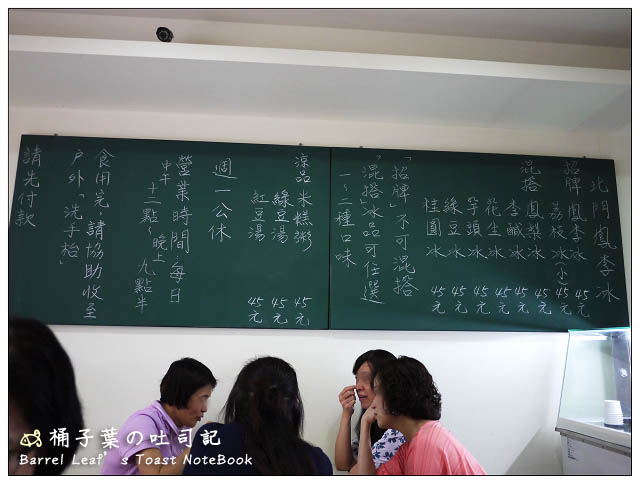 北門鳳李冰
招牌 鳳李冰 45元
荔枝冰(小) 45元
混搭 鳳梨冰 45元
李鹹冰 45元
花生冰 45元
芋頭冰 45元
綠豆冰 45元
桂圓冰 45元
「招牌」不可混搭
「混搭」冰品可任選
一~二種口味
涼品 米糕粥 45元
綠豆湯 45元
紅豆湯 45元
週一公休
營業時間~每日
中午十二點~晚上九點半
食用完 請協助收至
戶外「洗手枱」
請先付款
桶子葉の吐司記
Barrel Leaf's Toast NoteBook